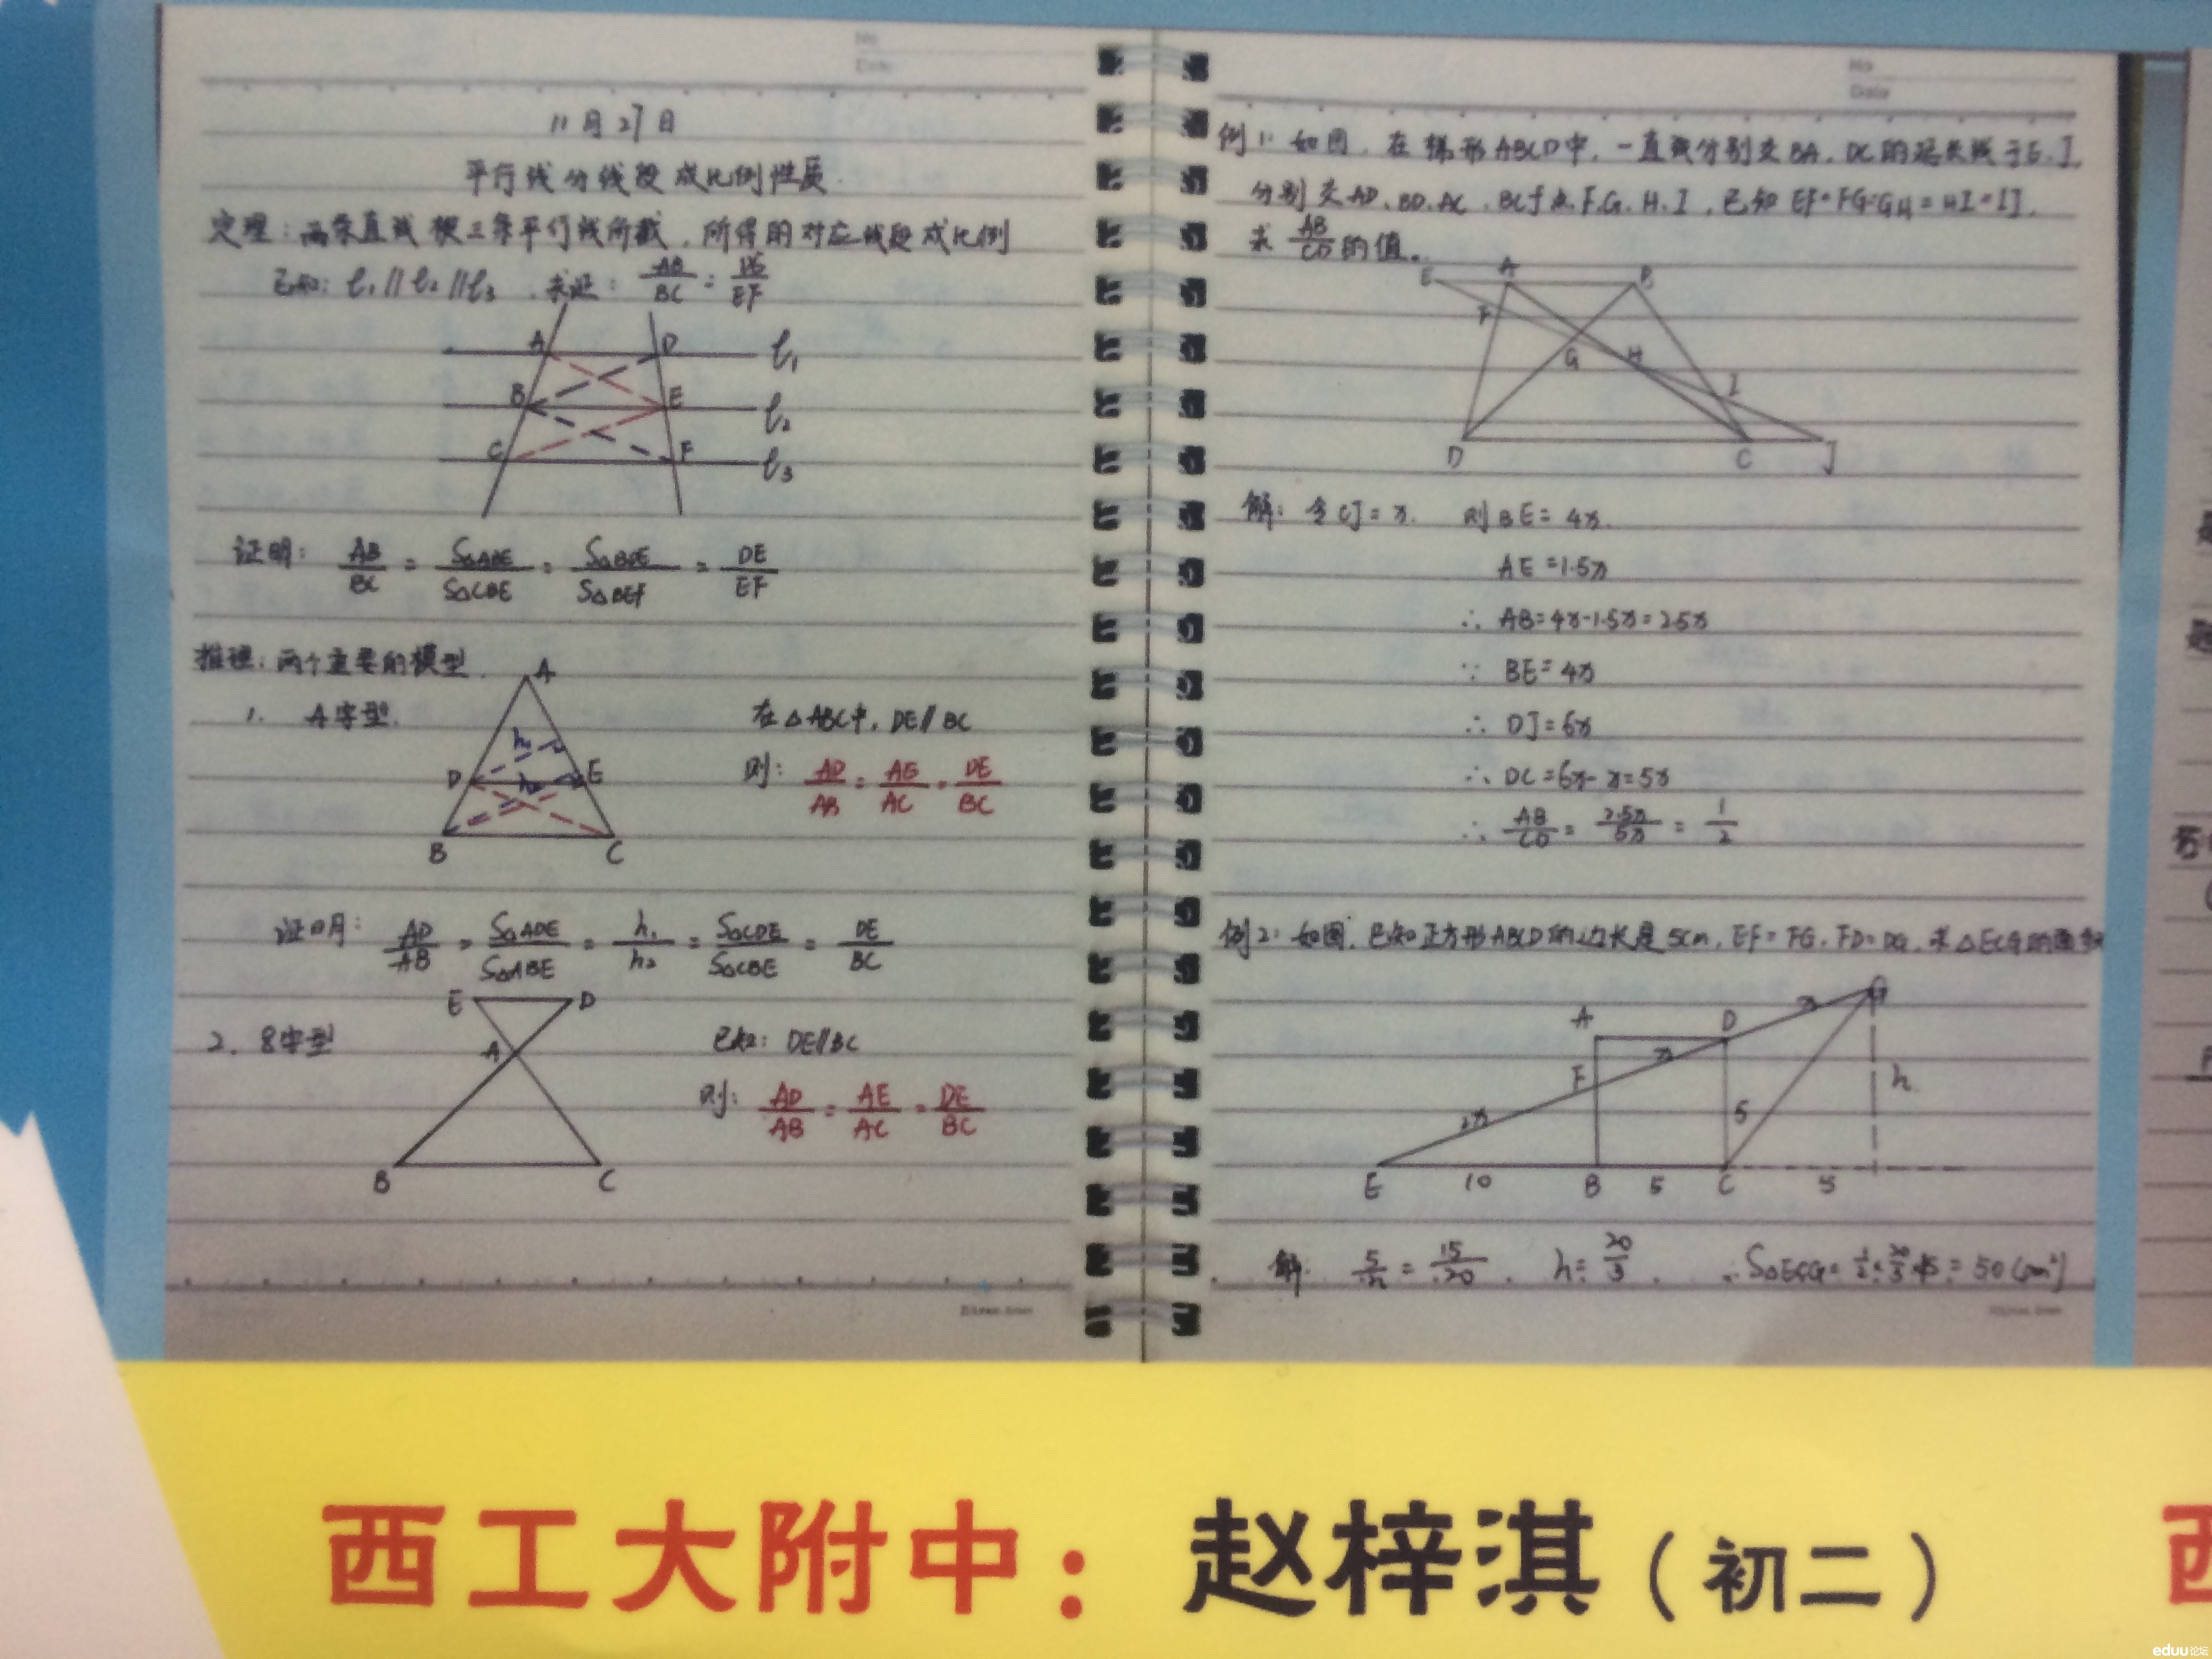 No
Date
11月27日
平行线分线段成比例性质.
定理:两条直线被三条平行线所截,所得的对应线段成比例
已知: l₁//l₂//l₃ .求证: AB/BC = DE/EF
A D l₁
B E l₂
C F l₃
证明: AB/BC = S△ABE/S△CBE = S△BDE/S△BEF = DE/EF
推理:两个主要的模型.
1. A字型.
A
h₁
D E
h₂
B C
在△ABC中, DE//BC
则: AD/AB = AE/AC = DE/BC
证明: AD/AB = S△ADE/S△ABE = h₁/h₂ = S△CDE/S△CBE = DE/BC
2. 8字型
E D
A
B C
已知: DE//BC
则: AD/AB = AE/AC = DE/BC
No
Date
例1: 如图,在梯形ABCD中,一直线分别交BA、DC的延长线于E、J,
分别交AD、BD、AC、BC于点F、G、H、I,已知EF=FG=GH=HI=IJ,
求 AB/CD 的值。
E A B
F
G H
I
D C J
解: 令CJ=x. 则BE=4x.
AE=1.5x
∴ AB=4x-1.5x=2.5x
∵ BE=4x
∴ DJ=6x
∴ DC=6x-x=5x
∴ AB/CD = 2.5x/5x = 1/2
例2: 如图,已知正方形ABCD的边长是5cm, EF=FG, FD=DG, 求△ECG的面积
G
A D x
F x h
2x 5
E 10 B 5 C 5
解: 5/h = 15/20 . h= 20/3 . ∴S△ECG= 1/2 × 20/3 × 15 = 50(cm²)
西工大附中:赵梓淇(初二)
西
eduu论坛